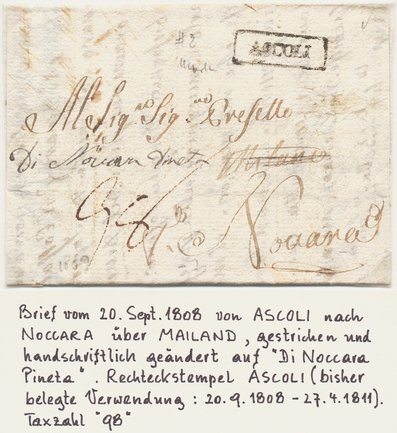 ASCOLI
Al Sig.no Sig.no Preselle
Di Noccara Pineta Milano
98 Noccara
Brief vom 20. Sept. 1808 von ASCOLI nach
NOCCARA über MAILAND, gestrichen und
handschriftlich geändert auf "Di Noccara
Pineta". Rechteckstempel ASCOLI (bisher
belegte Verwendung: 20.9.1808 - 27.4.1811).
Taxzahl "98"